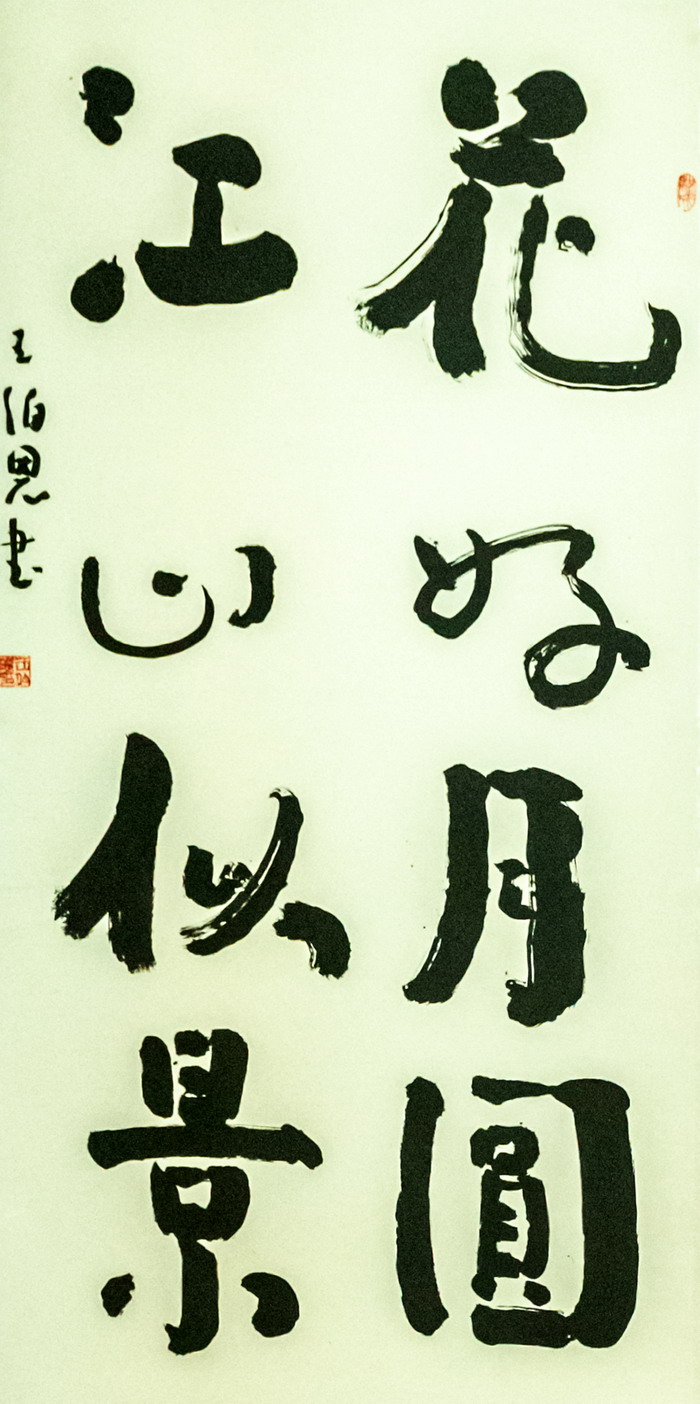 花好月圓
江山似景
王伯恩書